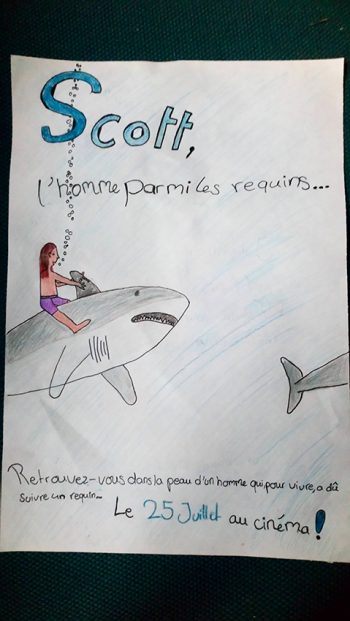 Scott,
l'homme parmi les requins...
Retrouvez-vous dans la peau d'un homme qui pour vivre, a dû
suivre un requin...
Le 25 Juillet au cinéma !